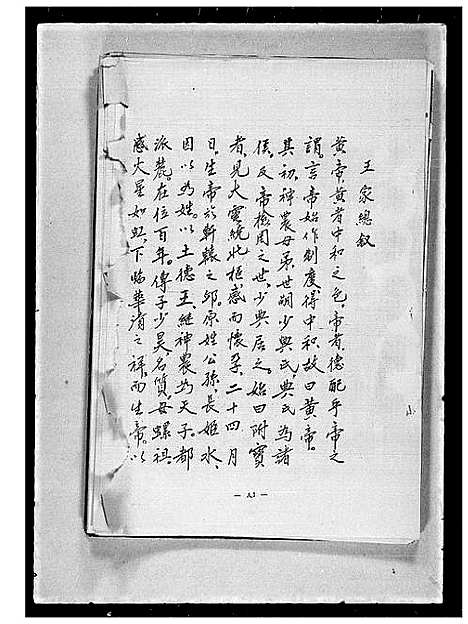 王家總叙
黃帝、黃者中和之色、帝者、德配乎帝之
謂。言帝始作制度、得中和、故曰黃帝。
其初、神農母弟、世嗣少典氏、典氏為諸
侯。及帝榆罔之世、少典居之。始曰附寶
者、見大電繞北樞、感而懷孕、二十四月
日。生帝於軒轅之邱。原姓公孫、長姬水、
因以為姓。以土德王、繼神農為天子。都
涿鹿、在位百年。傳子少昊、名質、母嫘祖、
感大星如虹、下臨華渚之祥、而生帝。以